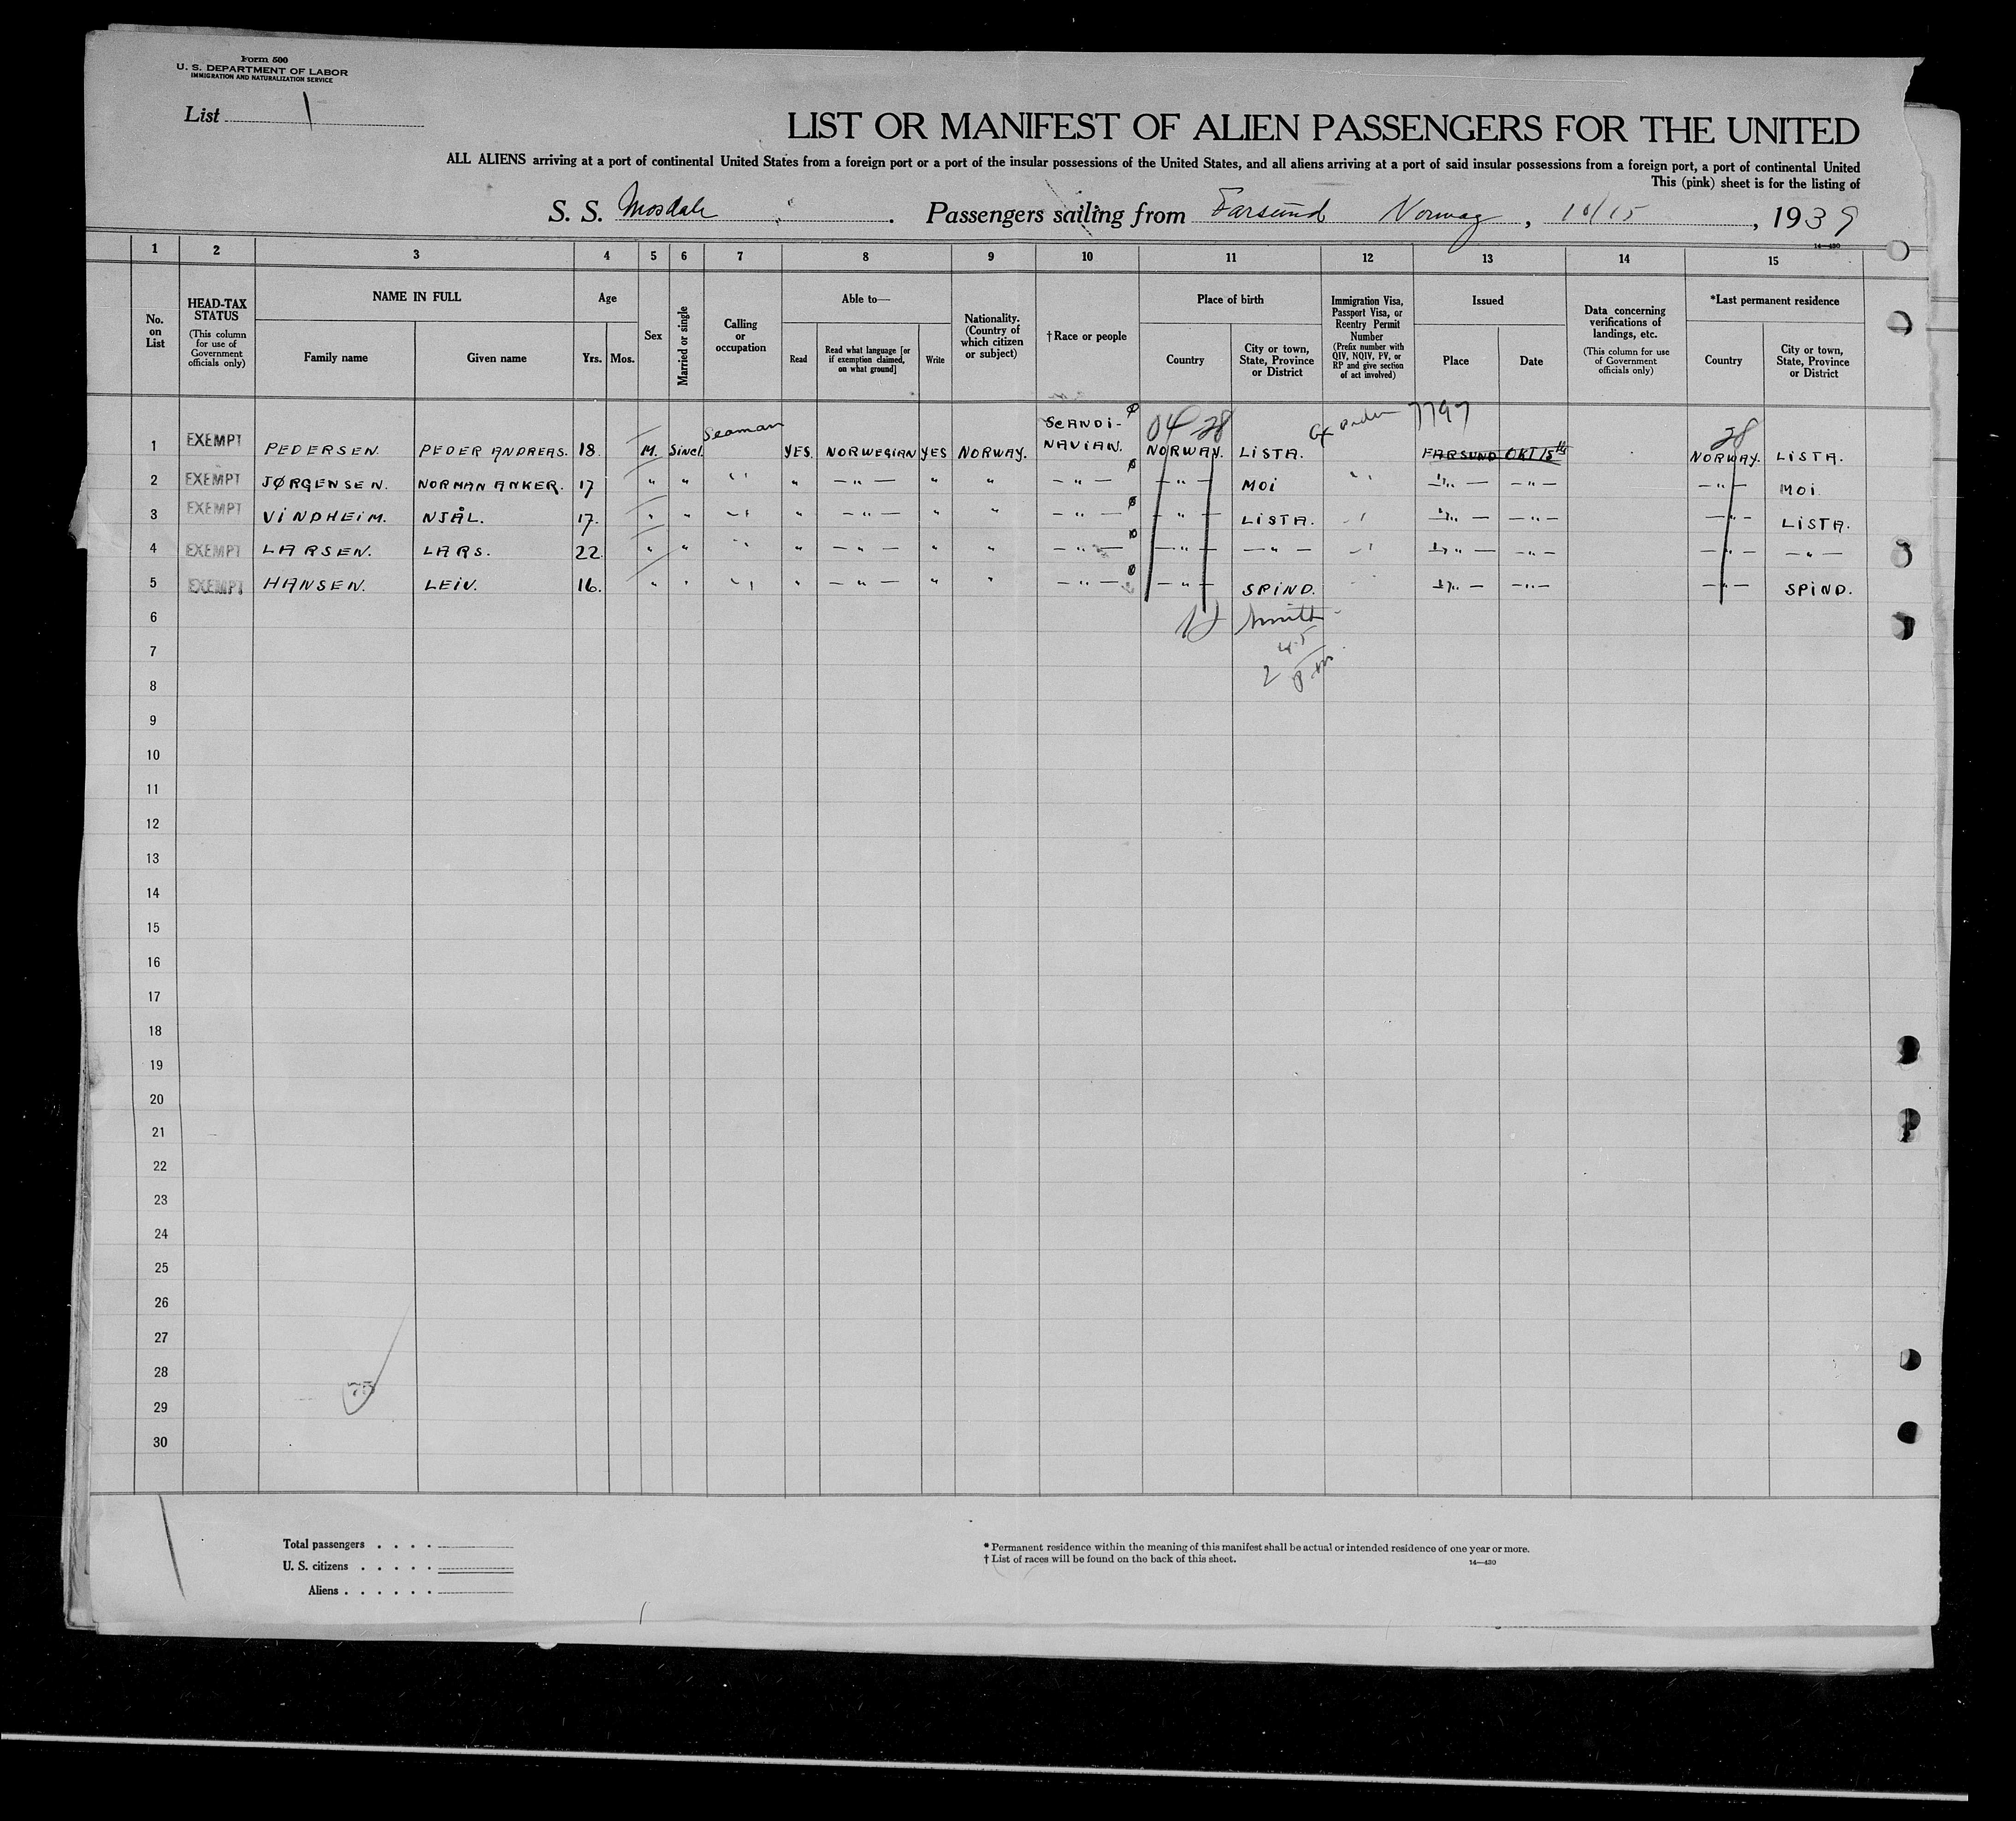 Form 500
U. S. DEPARTMENT OF LABOR
IMMIGRATION AND NATURALIZATION SERVICE
List 1
LIST OR MANIFEST OF ALIEN PASSENGERS FOR THE UNITED
ALL ALIENS arriving at a port of continental United States from a foreign port or a port of the insular possessions of the United States, and all aliens arriving at a port of said insular possessions from a foreign port, a port of continental United
This (pink) sheet is for the listing of
S. S. Mosdale . Passengers sailing from Farsund Norway , 10/15 , 1939
14—430
1 2 3 4 5 6 7 8 9 10 11 12 13 14 15
No. on List
HEAD-TAX STATUS
(This column for use of Government officials only)
NAME IN FULL
Family name
Given name
Age
Yrs.
Mos.
Sex
Married or single
Calling or occupation
Able to—
Read
Read what language [or if exemption claimed, on what ground]
Write
Nationality. (Country of which citizen or subject)
† Race or people
Place of birth
Country
City or town, State, Province or District
Immigration Visa, Passport Visa, or Reentry Permit Number
(Prefix number with QIV, NQIV, PV, or RP and give section of act involved)
Issued
Place
Date
Data concerning verifications of landings, etc.
(This column for use of Government officials only)
*Last permanent residence
Country
City or town, State, Province or District
04 28 7797 28
1 EXEMPT PEDERSEN. PEDER ANDREAS. 18 M. Singl. Seaman YES. NORWEGIAN YES NORWAY. SCANDI-NAVIAN. NORWAY. LISTA. FARSUND OKT 15th NORWAY. LISTA.
2 EXEMPT JØRGENSEN. NORMAN ANKER. 17 " " " " — " — " " — " — — " — MOI " — " — — " — — " — MOI.
3 EXEMPT VINDHEIM. NJÅL. 17. " " " " — " — " " — " — — " — LISTA. " — " — — " — — " — LISTA.
4 EXEMPT LARSEN. LARS. 22. " " " " — " — " " — " — — " — — " — " — " — — " — — " — — " —
5 EXEMPT HANSEN. LEIV. 16. " " " " — " — " " — " — — " — SPIND. " — " — — " — — " — SPIND.
6 Smith
7 2 45 pm
8
9
10
11
12
13
14
15
16
17
18
19
20
21
22
23
24
25
26
27
28
29
30
Total passengers . . . .
U. S. citizens . . . . .
Aliens . . . . . .
* Permanent residence within the meaning of this manifest shall be actual or intended residence of one year or more.
† List of races will be found on the back of this sheet.
14—430